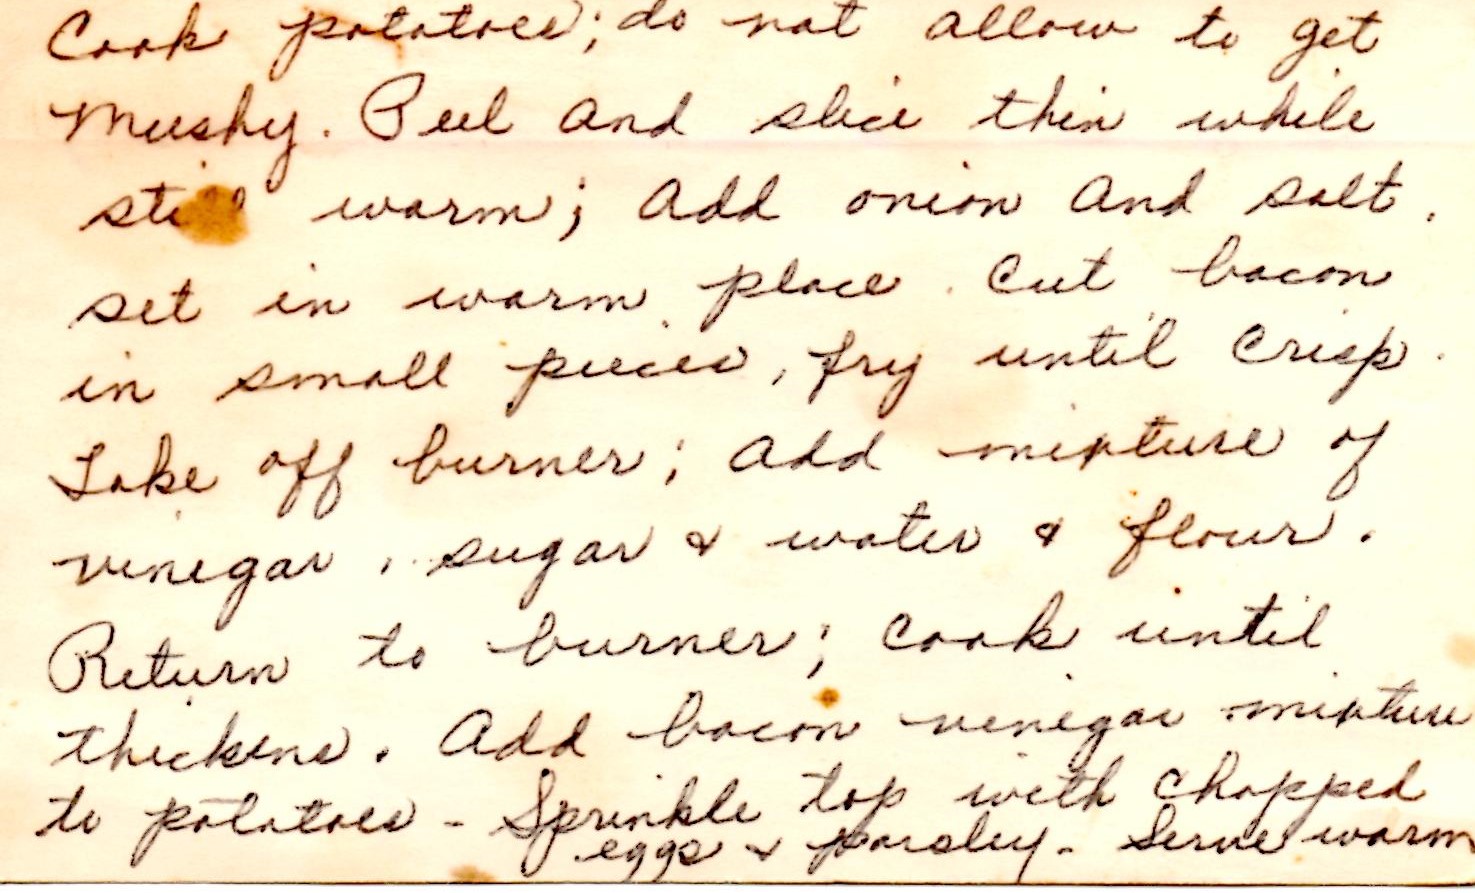 Cook potatoes; do not allow to get
Mushy. Peel and slice thin while
still warm; add onion and salt.
set in warm place. Cut bacon
in small pieces, fry until crisp.
Take off burner; add mixture of
vinegar, sugar & water & flour.
Return to burner; cook until
thickens. Add bacon vinegar mixture
to potatoes - Sprinkle top with chopped
eggs & parsley - Serve warm